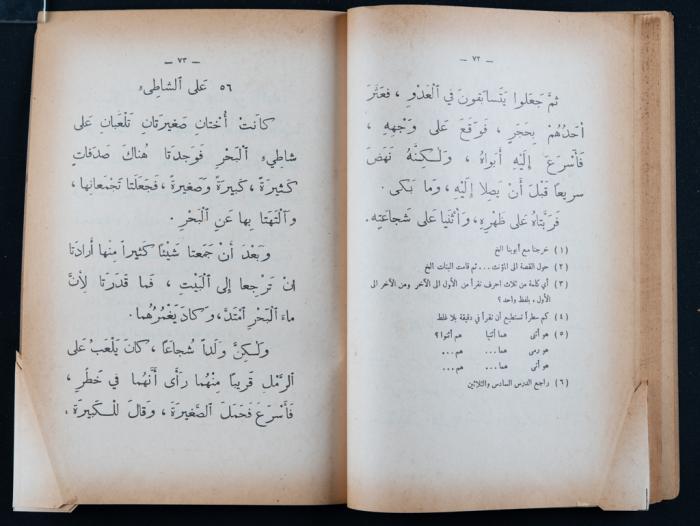 — ٧٢ —
ثمَّ جَعَلوا يَتَسابَقونَ في ٱلعَدْوِ ، فَعَثَرَ
أَحَدُهُم بِحَجَرٍ ، فَوَقَعَ على وَجْهِهِ ،
فَأَسْرَعَ إلَيْهِ أبَواهُ ، وَلٰكِنَّهُ نَهَضَ
سريعًا قَبْلَ أَنْ يَصِلا إلَيْهِ ، وَما بَكى .
فَرَبَّتاهُ على ظَهْرِهِ ، وَأَثْنَيا على شَجاعَتِه .
(١) خرجنا مع أبوينا الخ
(٢) حول القصة الى المؤنث ... ثم قامت البنات الخ
(٣) أي كلمة من ثلاث احرف تقرأ من الأول الى الآخر ومن الآخر الى
الأول ، بلفظ واحد ؟
(٤) كم سطراً تستطيع أن تقرأ في دقيقة بلا غلط
(٥) هو أثنى هما أثنيا هم أثنوا ؟
هو رمى هما ... هم ...
هو أتى هما ... هم ...
(٦) راجع الدرس السادس والثلاثين
— ٧٣ —
٥٦ عَلى ٱلشاطِىء
كانَتْ أُخْتانِ صَغيرَتانِ تَلْعَبانِ عَلى
شاطِىءِ ٱلبَحْرِ فَوَجَدَتا هُناكَ صَدَفاتٍ
كَثيرَةً ، كَبيرَةً وَصَغيرَةً ، فَجَعَلَتا تَجْمَعانِها ،
وَٱلْتَهَتا بِها عَنِ ٱلبَحْرِ .
وَبَعْدَ أَنْ جَمَعَتا شَيْئًا كَثيراً مِنْها أرادَتا
انْ تَرْجِعا إلى ٱلبَيْتِ ، فَما قَدَرَتا لِأَنَّ
ماءَ ٱلبَحْرِ ٱمْتَدَّ ، وَكادَ يَغْمُرُهُما .
وَلٰكِنَّ وَلَداً شُجاعاً ، كانَ يَلْعَبُ عَلى
ٱلرَّمْلِ قَريبًا مِنْهُما رَأى أَنَّهُما في خَطَرٍ ،
فَأَسْرَعَ فَحَمَلَ ٱلصَّغيرَةَ ، وَقالَ لِلْكَبيرَةِ ،